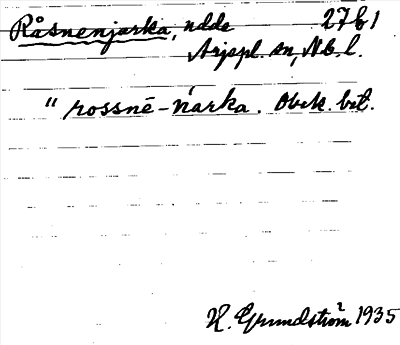 Råsnenjarka, udde 27 f 1
Arjepl. sn, Nb. l.
" rossnē-ńarka. Obek. bet.
H. Grundström 1935